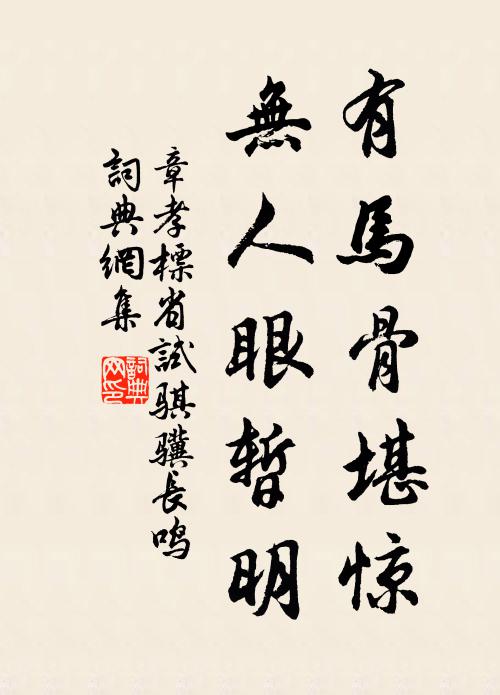 有馬骨堪惊
無人眼暫明
章孝標省試骐骥長鸣
詞典網集
詞典网印